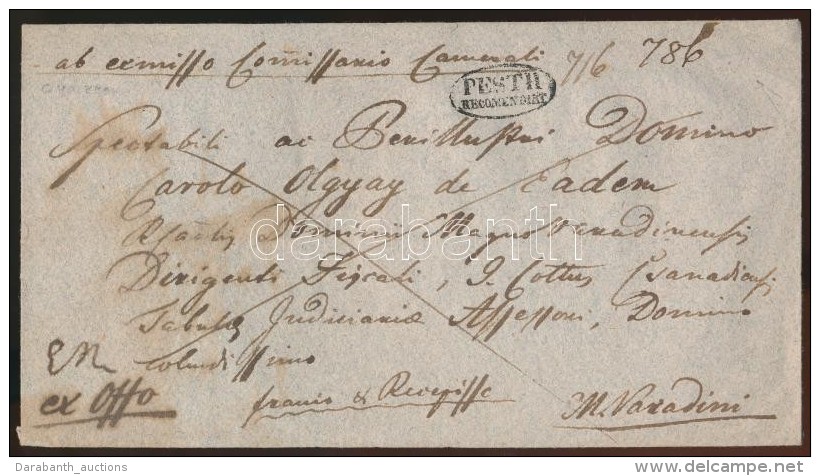 ab exmisso Comissario Camerali 7/6 786
PESTH
RECOMENDIRT
Spectabili ac Perillustri Domino
Carolo Olgyay de Eadem
Dominii Magno Varadinensis
Dirigenti Fiscali, I. Cottus Csanadiensis
Tabulae Judiciariæ Assessori, Domino
colendissimo
ex Offo
franco & Recepisse
M. Varadini
darabanth
Darabanth_auctions
delcampe.net